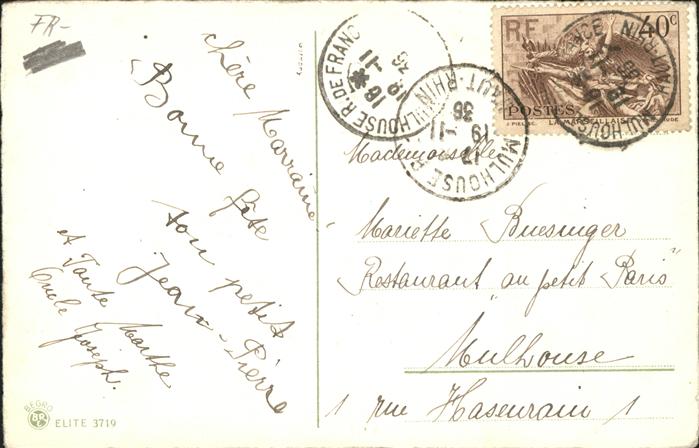 FR-
chère Marraine!
Bonne fête
ton petit
Jean-Pierre
et Tante Marthe
Oncle Joseph.
BEGRO
ELITE 3719
MULHOUSE R. DE FRANCE
16 -11
19 36
MULHOUSE HAUT-RHIN
17 -11
19 36
R.F. 40c
POSTES
LA MARSEILLAISE RUDE
Mademoiselle
Mariette Buesinger
Restaurant "au petit Paris"
Mulhouse
1 rue Hasenrain 1